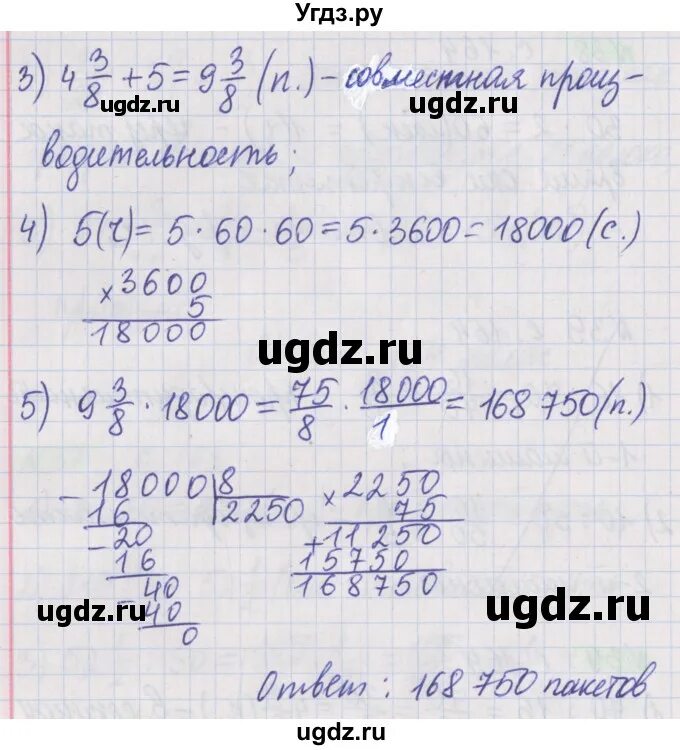 Угдз.ру
3) 4 3/8 + 5 = 9 3/8 (п.) – совместная произ-
ugdz.ru ugdz.ru
водительность;
4) 5(ч) = 5 · 60 · 60 = 5 · 3600 = 18000 (с.)
× 3600
5
18000
ugdz.ru
5) 9 3/8 · 18000 = 75/8 · 18000/1 = 168 750 (п.)
- 18000 | 8
16 2250
- 20
16
- 40
40
0
× 2250
75
+ 11250
15750
168750
ugdz.ru ugdz.ru
Ответ: 168 750 пакетов
ugdz.ru ugdz.ru